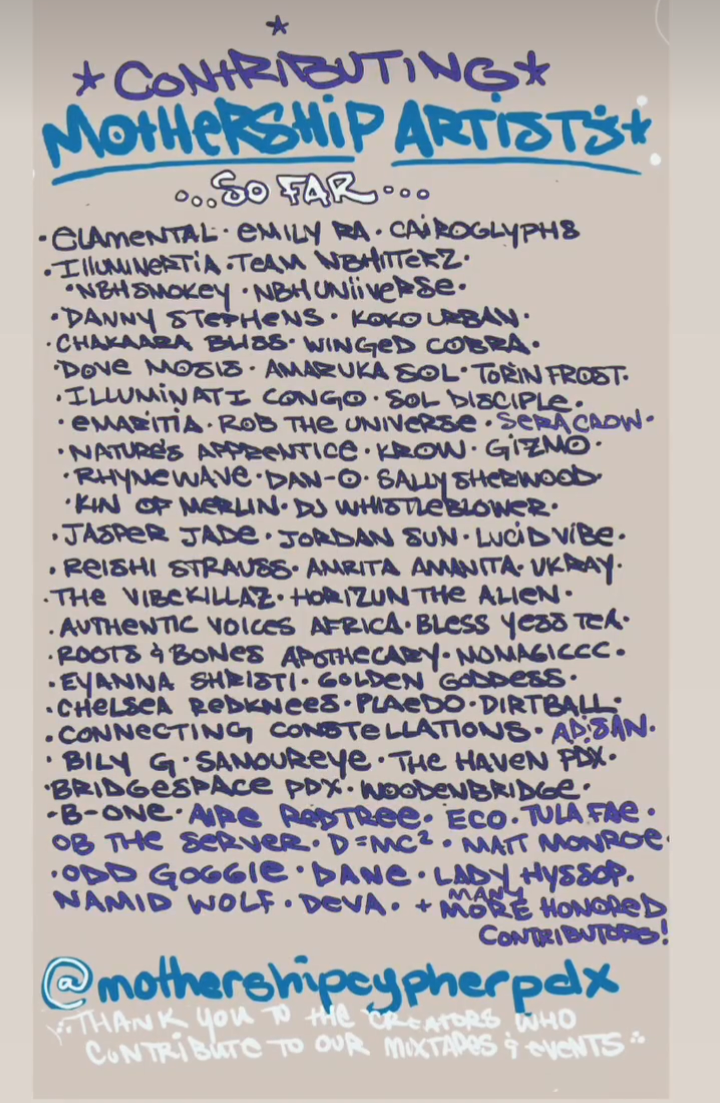 CONTRIBUTING
MOTHERSHIP ARTISTS
...SO FAR...
• ELAMENTAL • EMILY RA • CAIROGLYPHS
• ILLUMINERTIA • TEAM NBHITTERZ •
• NBH SMOKEY • NBH UNIIVERSE •
• DANNY STEPHENS • KOKO URBAN •
• CHAKAARA BLISS • WINGED COBRA •
• DOVE MOSIS • AMARUKA SOL • TORIN FROST •
• ILLUMINATI CONGO • SOL DISCIPLE •
• EMARITIA • ROB THE UNIVERSE • SERA CROW •
• NATURE'S APPRENTICE • KROW • GIZMO •
• RHYNEWAVE • DAN-O • SALLY SHERWOOD
• KIN OF MERLIN • DJ WHISTLEBLOWER •
• JASPER JADE • JORDAN SUN • LUCID VIBE •
• REISHI STRAUSS • AMRITA AMANITA • UKRAY •
• THE VIBEKILLAZ • HORIZUN THE ALIEN •
• AUTHENTIC VOICES AFRICA • BLESS YESS TEA •
• ROOTS & BONES APOTHECARY • NOMAGICCC •
• EYANNA SHRISTI • GOLDEN GODDESS •
• CHELSEA REDKNEES • PLAEDO • DIRTBALL •
• CONNECTING CONSTELLATIONS • AD.SAN •
• BILY G • SAMOUREYE • THE HAVEN PDX •
• BRIDGESPACE PDX • WOODENBRIDGE •
- B-ONE • AIRE REDTREE • ECO • TULA FAE •
OB THE SERVER • D=MC² • MATT MONROE •
• ODD GOGGIE • DANE • LADY HYSSOP •
NAMID WOLF • DEVA • + MANY MORE HONORED
CONTRIBUTORS!
@mothershipcypherpdx
THANK YOU TO THE CREATORS WHO
CONTRIBUTE TO OUR MIXTAPES & EVENTS